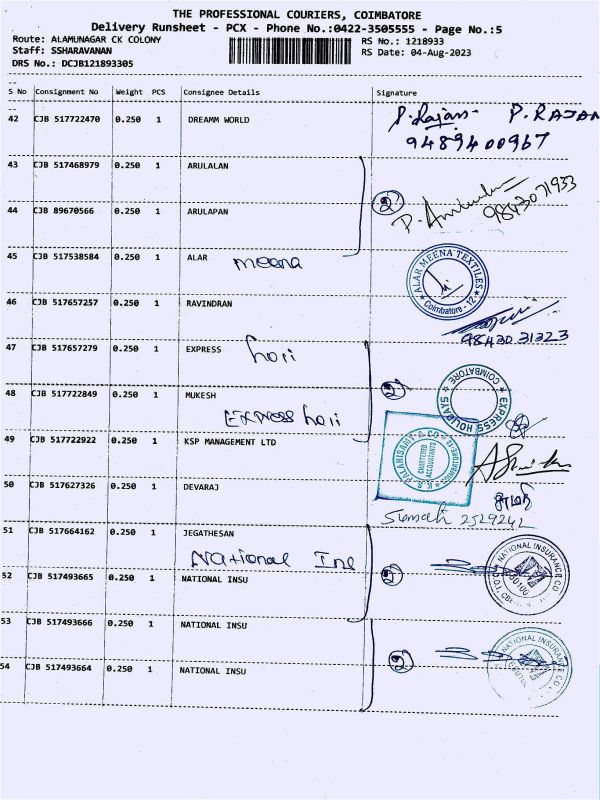 THE PROFESSIONAL COURIERS, COIMBATORE
Delivery Runsheet - PCX - Phone No.:0422-3505555 - Page No.:5
Route: ALAMUNAGAR CK COLONY
RS No.: 1218933
Staff: SSHARAVANAN
RS Date: 04-Aug-2023
DRS No.: DCJB121893305
S No Consignment No Weight PCS Consignee Details Signature
42 CJB 517722470 0.250 1 DREAMM WORLD
P. RAJAN
9489400967
43 CJB 517468979 0.250 1 ARULALAN
2
9843071933
44 CJB 89670566 0.250 1 ARULAPAN
45 CJB 517538584 0.250 1 ALAR meena
ALAR MEENA TEXTILES
Coimbatore - 12
46 CJB 517657257 0.250 1 RAVINDRAN
9843031223
47 CJB 517657279 0.250 1 EXPRESS holi
2
EXPRESS HOLIDAYS
COIMBATORE
48 CJB 517722849 0.250 1 MUKESH
EXPRESS holi
49 CJB 517722922 0.250 1 KSP MANAGEMENT LTD
CHARTERED
ACCOUNTANTS
50 CJB 517627326 0.250 1 DEVARAJ
Sumathi 2529242
51 CJB 517664162 0.250 1 JEGATHESAN
National Ine
2
NATIONAL INSURANCE CO
52 CJB 517493665 0.250 1 NATIONAL INSU
53 CJB 517493666 0.250 1 NATIONAL INSU
2
NATIONAL INSURANCE CO
54 CJB 517493664 0.250 1 NATIONAL INSU